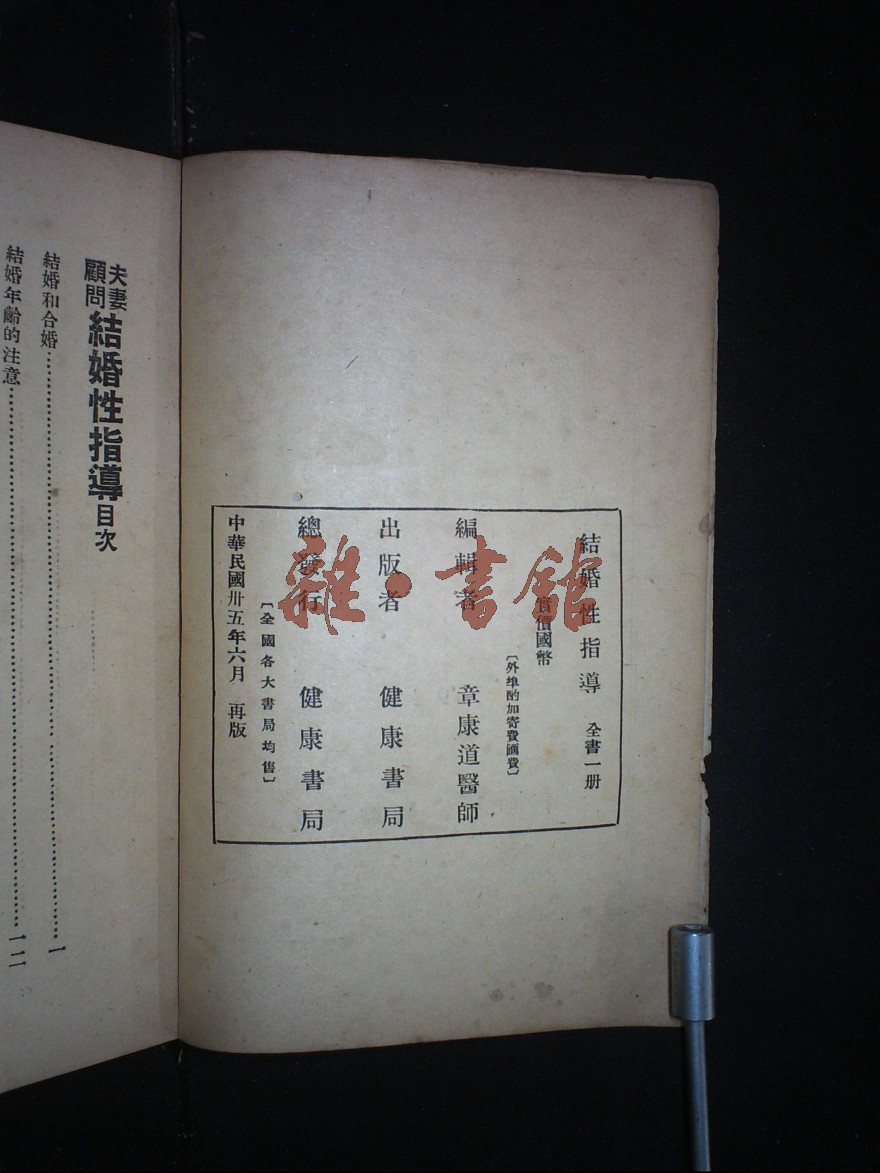 結婚性指導 全書一册
實價國幣
〔外埠酌加寄費匯費〕
編輯者 章康道醫師
出版者 健康書局
總發行 健康書局
〔全國各大書局均售〕
中華民國卅五年六月 再版
雜·書館
夫妻顧問 結婚性指導目次
結婚和合婚…………一
結婚年齡的注意…………一二